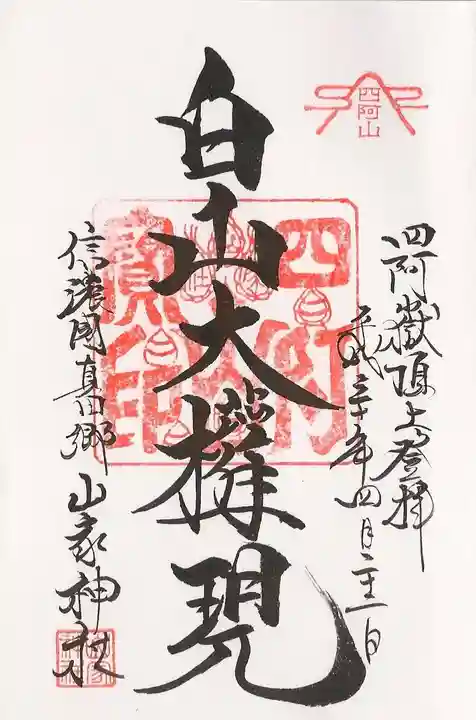 四阿山
四阿嶽頂上登拝
平成三十年四月二十一日
白山大権現
四阿
寳印
信濃國真田郷
山家神社